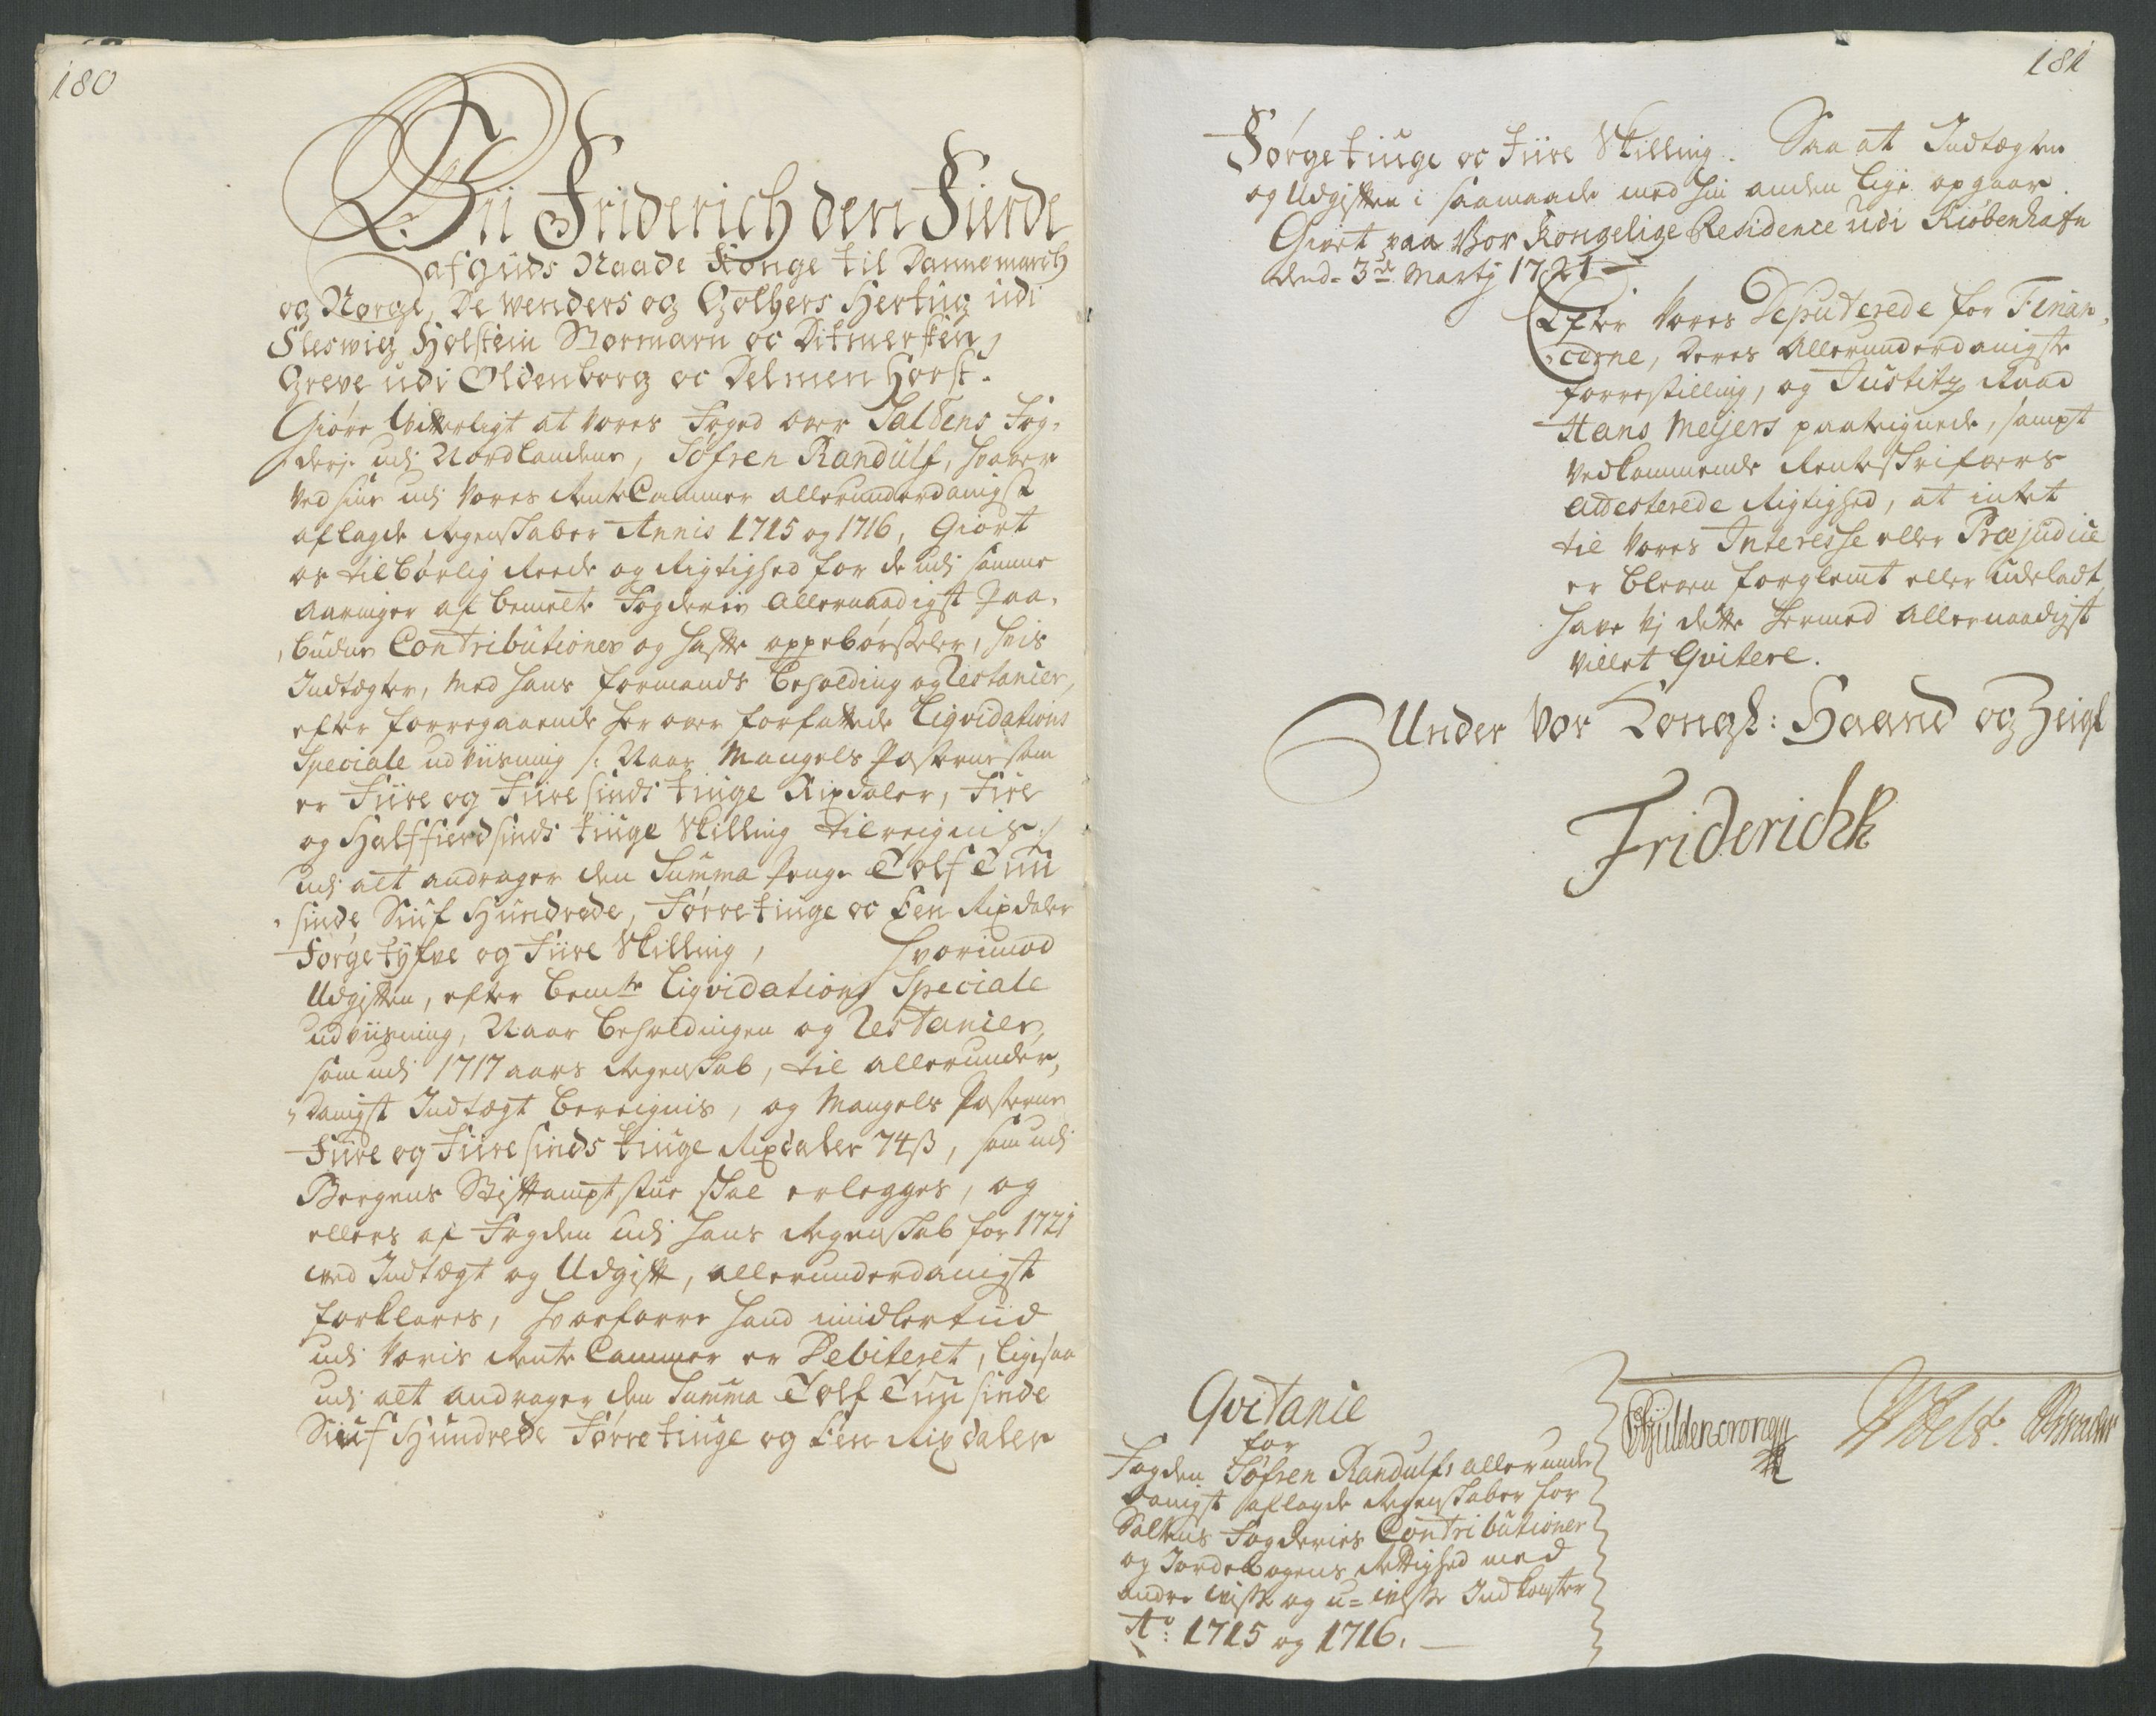 180
Vii Friderich den Fierde
af Guds Naade Konge til Dannemarch
og Norge, De Wenders og Gothers Hertug udi
Sleswig Holstein Stormarn oc Ditmersken,
Greve udi Oldenborg oc Delmenhorst.
Giøre Witterligt at Vores Foged over Saltens Fog-
derj udi Nordlandene, Søfren Randulf, haver
ved sine udj Vores RenteCammer allerunderdanigst
aflagde Regenskaber Annis 1715 og 1716, Giort
os tilbørlig Reede og Rigtighed for de udj samme
Aaringer af bemelte Fogderie Allernaadigst Paa-
budne Contributioner og hafte oppebørseler, hvis
Indtægter, med hans formands Beholding og Restancier,
efter forregaaende her over forfattede Liqvidations
Speciale udviisning /: Naar Mangels Posterne som
er Fiire og Fiiresinds tiuge Rixdaler, Fire
og Halffierdsinds tiuge Skilling tilreignis :/
udj alt andrager den Summa Penge Tolf Tuu
sinde Siuf Hundrede, Førretiuge oc Een Rixdaler
Førgetyfve og Fiire Skilling, Hvorimod
Udgiften, efter bemte Liqvidations Speciale
udviisning, Naar Beholdningen og Restancier,
som udj 1717 aars Regenskab, til allerunder,
danigst Indtægt bereignis, og Mangels Posterne
Fiire og Fiiresinds tiuge Rixdaler 74 ß, som udj
Bergens Stiftamptstue skal erlegges, og
ellers af Fogden udj hans Regenskab for 1721
ved Indtægt og Udgift, allerunderdanigst
forklares, hvorforre hand imidlertiid
udj Voris RenteCammer er Debiteret, ligesaa
udj alt andrager den Summa Tolf Tuusinde
Siuf Hundrede Førretiuge og Een Rixdaler
181
Førgetiuge oc Fiire Skilling. Saa at Indtægten
og Udgiften i saamaade mod hin anden lige opgaar.
Givet paa Vor Kongelige Residence udi Kiøbenhafn
dend 3de Martj 1721
Efter Vores Deputerede for Finan-
cerne, deres Allerunderdanigste
forrestilling, og Justitz Raad
Hans Meijers paateignede, sampt
Vedkommende Renteskrifvers
Attesterede Rigtighed, at intet
til Vores Interesse eller Præjudice
er bleven forglemt eller udeladt,
have Vj dette hermed allernaadigst
villet Qvitere.
Under Vor Kongl: Haand og Zeigl
Friderichk
Gyldencrone
Qvitanie
for
Fogden Søfren Randulfs allerunder
danigst aflagde Regenskaber for
Saltens Fogderies Contributioner
og Jordebogens Rettighed med
andre visse og u-visse Indkomster
Ao: 1715 og 1716.